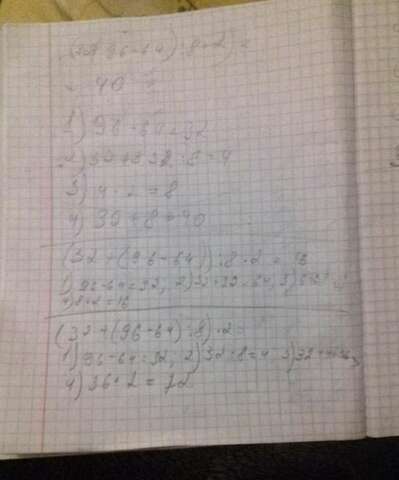 96-64) : 8 · 2) =
= 40
1) 96-64=32
2) 32 : 8 = 4
3) 4 · 2 = 8
4) 32+8=40
(32+(96-64)):8·2=16
1) 96-64=32, 2) 32+32=64, 3)
4) 8·2=16
(32+(96-64):8)·2=
1) 96-64=32, 2) 32:8=4 3) 32+4=36,
4) 36·2=72